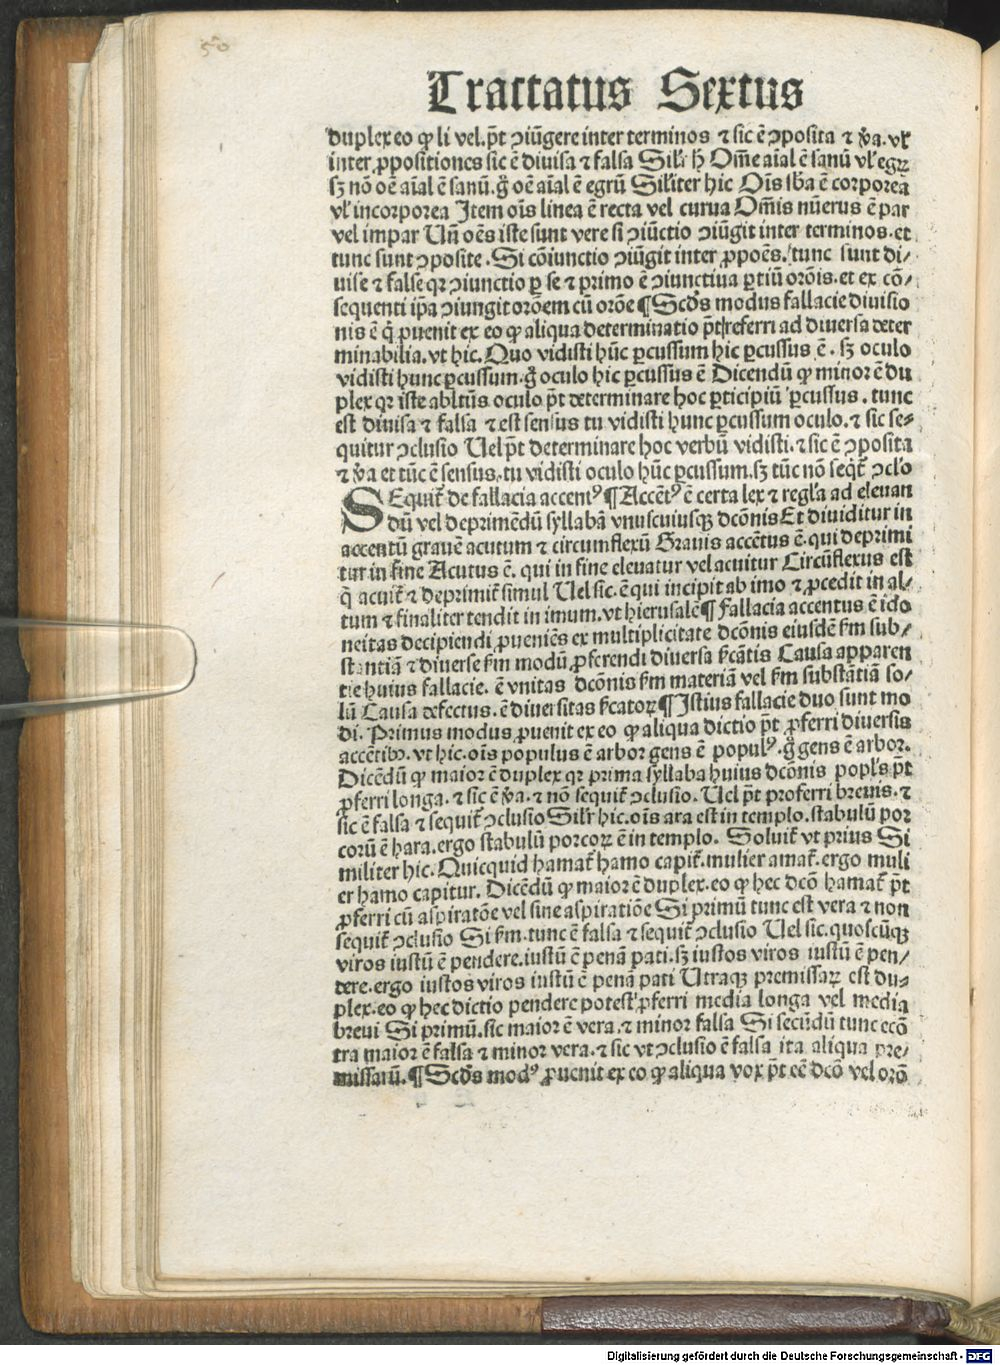 50
Tractatus Sextus
duplex eo ꝙ li vel. pñt ↄiũgere inter terminos ⁊ sic ẽ ↄposita ⁊ ꝟa. vl'
inter ꝓpositiones sic ẽ diuisa ⁊ falsa Sil'r h̄ Om̃e aĩal ẽ sanũ vl' egꝝ
sꝫ nõ oẽ aĩal ẽ sanũ. gͦ oẽ aĩal ẽ egrũ Sil'iter hic Oĩs sb̃a ẽ corporea
vl' incorporea Item oĩs linea ẽ recta vel curua Om̃is nũerus ẽ par
vel impar Uñ oẽs iste sunt vere si ↄiũctio ↄiũgit inter terminos. et
tunc sunt ↄposite. Si cõiunctio ↄiũgit inter ꝓpoẽs. tunc sunt di⸗
uise ⁊ false qꝛ ↄiunctio ꝑ se ⁊ primo ẽ ↄiunctiua ꝑtiũ orõis. et ex cõ⸗
sequenti ip̃a ↄiungit orõem cũ orõe ¶ Scd's modus fallacie diuisio
nis ẽ q̇ ꝓuenit ex eo ꝙ aliqua determinatio p̃t referri ad diuersa deter
minabilia. vt hic. Quo vidisti hũc ꝑcussum hic ꝑcussus ẽ. sꝫ oculo
vidisti hunc ꝑcussum. gͦ oculo hic ꝑcussus ẽ Dicendũ ꝙ minor ẽ du
plex qꝛ iste abltĩus oculo p̃t determinare hoc ꝑticipiũ ꝑcussus. tunc
est diuisa ⁊ falsa ⁊ est sensus tu vidisti hunc ꝑcussum oculo. ⁊ sic se⸗
quitur ↄclusio Uel p̃t determinare hoc verbũ vidisti. ⁊ sic ẽ ↄposita
⁊ ꝟa et tũc ẽ sensus. tu vidisti oculo hũc ꝑcussum. sꝫ tũc nõ seqt̃ ↄcl'o
SEquit̃ de fallacia accentꝰ ¶ Accẽtꝰ ẽ certa lex ⁊ regl'a ad eleuan
dũ vel deprimẽdũ syllabã vnuscuiusqꝫ dcõnis Et diuiditur in
accentũ grauẽ acutum ⁊ circumflexũ Grauis accẽtus ẽ. qui deprimi
tur in fine Acutus ẽ. qui in fine eleuatur vel acuitur Circũflexus est
q̇ acuit̃ ⁊ deprimit̃ simul Uel sic. ẽ qui incipit ab imo ⁊ ꝓcedit in al⸗
tum ⁊ finaliter tendit in imum. vt hierusalẽ ¶ Fallacia accentus ẽ ido
neitas decipiendi ꝓueniẽs ex multiplicitate dcõnis eiusdẽ ẜm sub⸗
stantiã ⁊ diuerse ẜm modũ ꝓferendi diuersa ẜcãtis Causa apparen
tie huius fallacie. ẽ vnitas dcõnis ẜm materiã vel ẜm substãtiã so⸗
lũ Causa defectus. ẽ diuersitas ẜcatoꝝ ¶ Istius fallacie duo sunt mo
di. Primus modus ꝓuenit ex eo ꝙ aliqua dictio p̃t ꝓferri diuersis
accẽtibꝫ. vt hic. oĩs populus ẽ arbor gens ẽ populꝰ. gͦ gens ẽ arbor.
Dicẽdũ ꝙ maior ẽ duplex qꝛ prima syllaba huius dcõnis popl's p̃t
ꝓferri longa. ⁊ sic ẽ ꝟa. ⁊ nõ sequit̃ ↄclusio. Uel p̃t proferri breuis. ⁊
sic ẽ falsa ⁊ sequit̃ ↄclusio Sil'r hic. oĩs ara est in templo. stabulũ por
corũ ẽ hara. ergo stabulũ porcoꝝ ẽ in templo. Soluit̃ vt prius Si
militer hic. Quicquid hamat̃ hamo capit̃. mulier amat̃. ergo muli
er hamo capitur. Dicẽdũ ꝙ maior ẽ duplex. eo ꝙ hec dcõ hamat̃ p̃t
ꝓferri cũ aspiratõe vel sine aspiratiõe Si primũ tunc est vera ⁊ non
sequit̃ ↄclusio Si ẜm. tunc ẽ falsa ⁊ sequit̃ ↄclusio Uel sic. quoscũqꝫ
viros iustũ ẽ pendere. iustũ ẽ penã pati. sꝫ iustos viros iustũ ẽ pen⸗
dere. ergo iustos viros iustũ ẽ penã pati Utraqꝫ premissaꝝ est du⸗
plex. eo ꝙ hec dictio pendere potest ꝓferri media longa vel media
breui Si primũ. sic maior ẽ vera. ⁊ minor falsa Si secũdũ tunc ecõ
tra maior ẽ falsa ⁊ minor vera. ⁊ sic vt ↄclusio ẽ falsa ita aliqua pre⸗
missarũ. ¶ Scd's modꝰ ꝓuenit ex eo ꝙ aliqua vox p̃t eẽ dcõ vel orõ
Digitalisierung gefördert durch die Deutsche Forschungsgemeinschaft - DFG